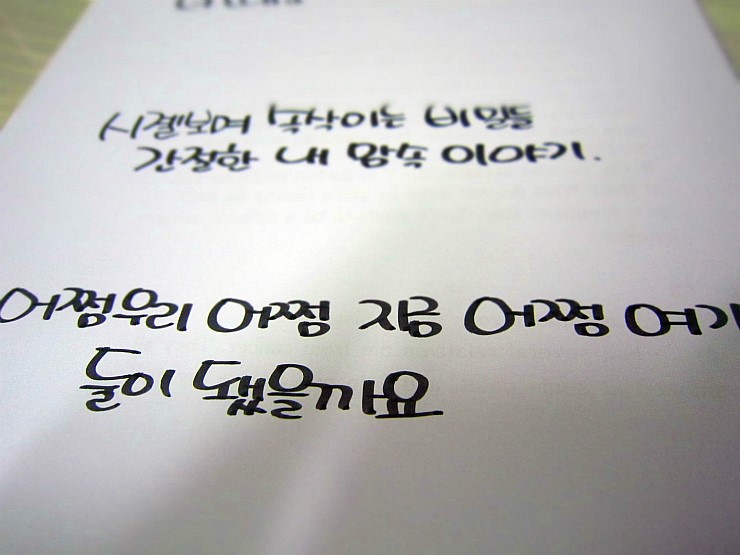 시곌보며 속삭이는 비밀들
간절한 내 맘속 이야기.
어쩜 우리 어쩜 지금 어쩜 여기
둘이 됐을까요